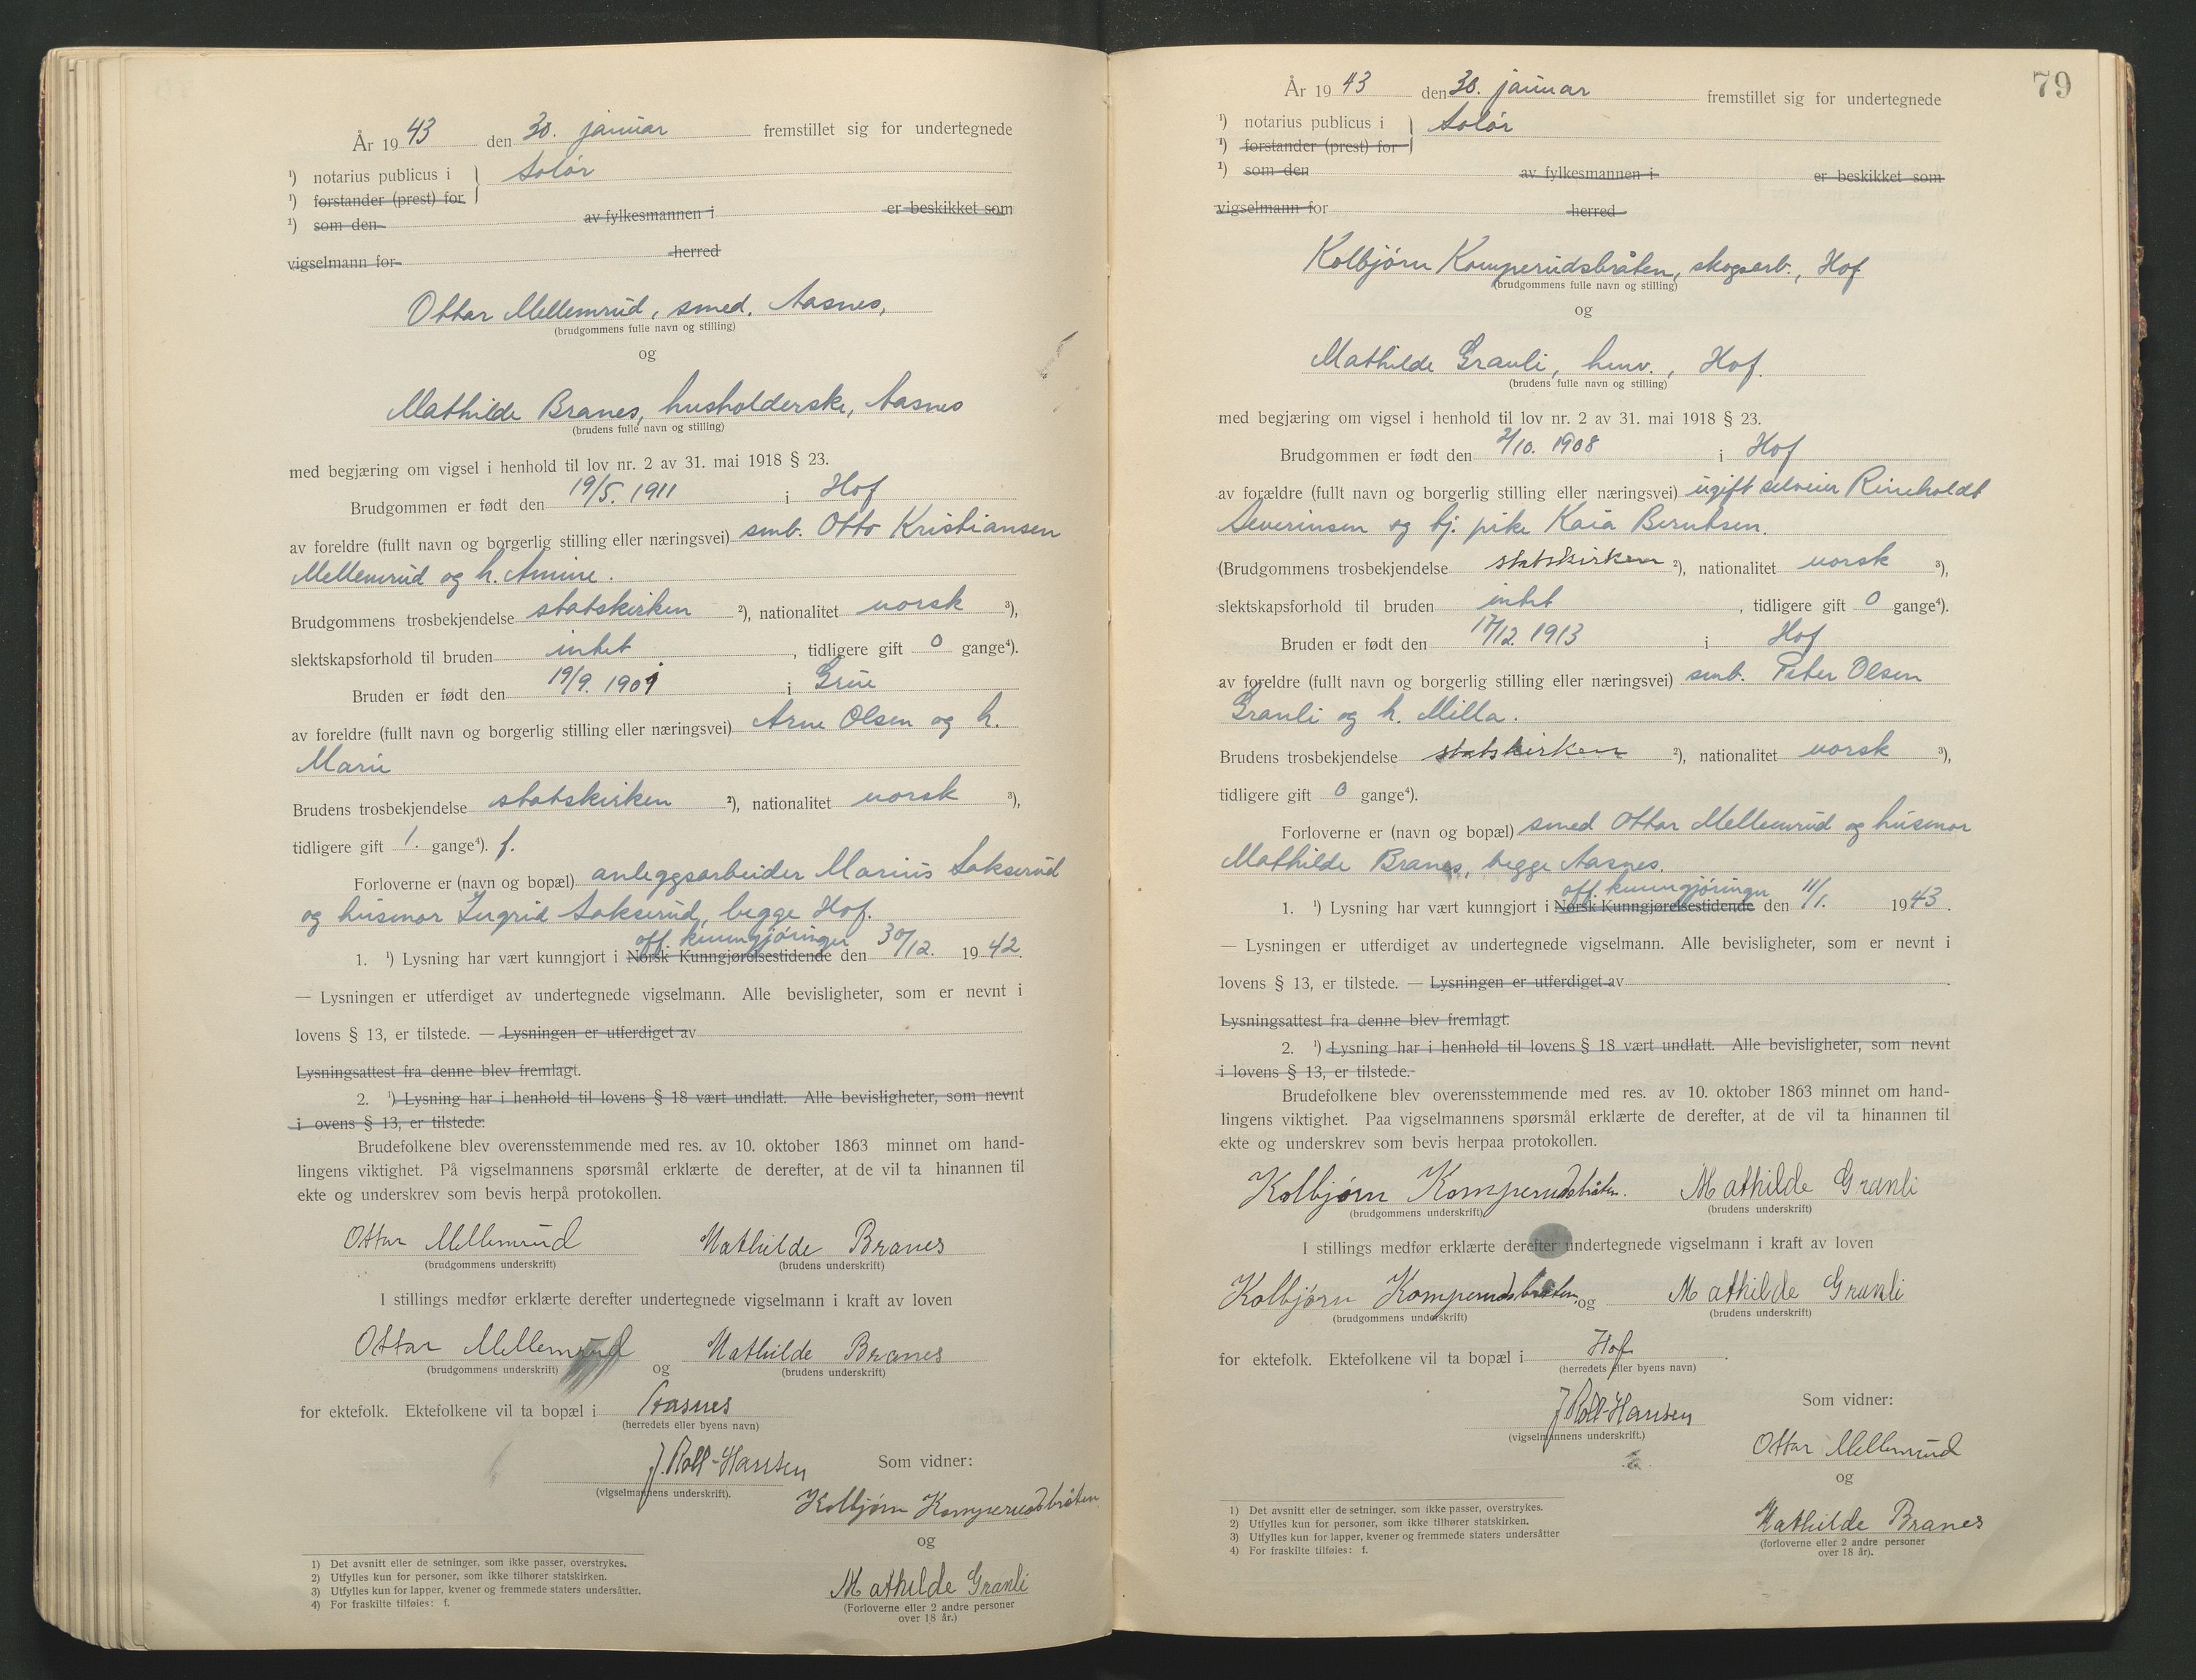 År 1943 den 30. januar fremstillet sig for undertegnede
¹) notarius publicus i } Solør
¹) forstander (prest) for
¹) som den av fylkesmannen i er beskikket som
vigselmann for herred
Ottar Mellemrud, smed, Aasnes,
(brudgommens fulle navn og stilling)
og
Mathilde Branes, husholderske, Aasnes
(brudens fulle navn og stilling)
med begjæring om vigsel i henhold til lov nr. 2 av 31. mai 1918 § 23.
Brudgommen er født den 19/5. 1911 i Hof
av foreldre (fullt navn og borgerlig stilling eller næringsvei) smb. Otto Kristiansen
Mellemrud og h. Amine.
Brudgommens trosbekjendelse statskirken ²), nationalitet norsk ³),
slektskapsforhold til bruden intet, tidligere gift 0 gange⁴).
Bruden er født den 19/9. 1909 i Grue
av foreldre (fullt navn og borgerlig stilling eller næringsvei) Arne Olsen og h.
Marie
Brudens trosbekjendelse statskirken ²), nationalitet norsk ³),
tidligere gift 1. gange⁴). f.
Forloverne er (navn og bopæl) anleggsarbeider Marius Sakserud
og husmor Ingrid Sakserud, begge Hof.
off. kunngjøringer
1. ¹) Lysning har vært kunngjort i Norsk Kunngjørelsestidende den 30/12. 1942.
— Lysningen er utferdiget av undertegnede vigselmann. Alle bevisligheter, som er nevnt i
lovens § 13, er tilstede. — Lysningen er utferdiget av
Lysningsattest fra denne blev fremlagt.
2. ¹) Lysning har i henhold til lovens § 18 vært undlatt. Alle bevisligheter, som nevnt
i ovens § 13, er tilstede.
Brudefolkene blev overensstemmende med res. av 10. oktober 1863 minnet om hand-
lingens viktighet. På vigselmannens spørsmål erklærte de derefter, at de vil ta hinannen til
ekte og underskrev som bevis herpå protokollen.
Ottar Mellemrud Mathilde Branes
(brudgommens underskrift) (brudens underskrift)
I stillings medfør erklærte derefter undertegnede vigselmann i kraft av loven
Ottar Mellemrud og Mathilde Branes
(brudgommens underskrift) (brudens underskrift)
for ektefolk. Ektefolkene vil ta bopæl i Aasnes
(herredets eller byens navn)
J. Roll-Hansen Som vidner:
(vigselmannens underskrift).
Kolbjørn Komperudsbråten
og
Mathilde Granli
(Forloverne eller 2 andre personer
over 18 år.)
1) Det avsnitt eller de setninger, som ikke passer, overstrykes.
2) Utfylles kun for personer, som ikke tilhører statskirken.
3) Utfylles kun for lapper, kvener og fremmede staters undersåtter.
4) For fraskilte tilføies: f.
79
År 1943 den 30. januar fremstillet sig for undertegnede
¹) notarius publicus i } Solør
¹) forstander (prest) for
¹) som den av fylkesmannen i er beskikket som
vigselmann for herred
Kolbjørn Komperudsbråten, skogsarb., Hof
(brudgommens fulle navn og stilling)
og
Mathilde Granli, hmv., Hof.
(brudens fulle navn og stilling)
med begjæring om vigsel i henhold til lov nr. 2 av 31. mai 1918 § 23.
Brudgommen er født den 2/10. 1908 i Hof
av forældre (fullt navn og borgerlig stilling eller næringsvei) ugift selveier Rineholdt
Severinsen og tj. pike Kaia Berntsen.
(Brudgommens trosbekjendelse statskirken ²), nationalitet norsk ³),
slektskapsforhold til bruden intet, tidligere gift 0 gange⁴).
Bruden er født den 17/12. 1913 i Hof
av foreldre (fullt navn og borgerlig stilling eller næringsvei) smb. Peter Olsen
Granli og h. Milla.
Brudens trosbekjendelse statskirken ²), nationalitet norsk ³),
tidligere gift 0 gange⁴).
Forloverne er (navn og bopæl) smed Ottar Mellemrud og husmor
Mathilde Branes, begge Aasnes.
off. kunngjøringer
1. ¹) Lysning har vært kunngjort i Norsk Kunngjørelsestidende den 11/1. 1943.
— Lysningen er utferdiget av undertegnede vigselmann. Alle bevisligheter, som er nevnt i
lovens § 13, er tilstede. — Lysningen er utferdiget av
Lysningsattest fra denne blev fremlagt.
2. ¹) Lysning har i henhold til lovens § 18 vært undlatt. Alle bevisligheter, som nevnt
i lovens § 13, er tilstede.
Brudefolkene blev overensstemmende med res. av 10. oktober 1863 minnet om hand-
lingens viktighet. Paa vigselmannens spørsmål erklærte de derefter, at de vil ta hinannen til
ekte og underskrev som bevis herpaa protokollen.
Kolbjørn Komperudsbråten. Mathilde Granli
(brudgommens underskrift) (brudens underskrift)
I stillings medfør erklærte derefter undertegnede vigselmann i kraft av loven
Kolbjørn Komperudsbråten, og Mathilde Granli
(brudgommens underskrift) (brudens underskrift)
for ektefolk. Ektefolkene vil ta bopæl i Hof.
(herredets eller byens navn)
J Roll-Hansen Som vidner:
(vigselmannens underskrift.)
Ottar Mellemrud
og
Mathilde Branes
(forloverne eller 2 andre personer
over 18 år).
1) Det avsnitt eller de setninger, som ikke passer, overstrykes.
2) Utfylles kun for personer, som ikke tilhører statskirken.
3) Utfylles kun for lapper, kvener og fremmede staters undersåtter
4) For fraskilte tilføies: f.